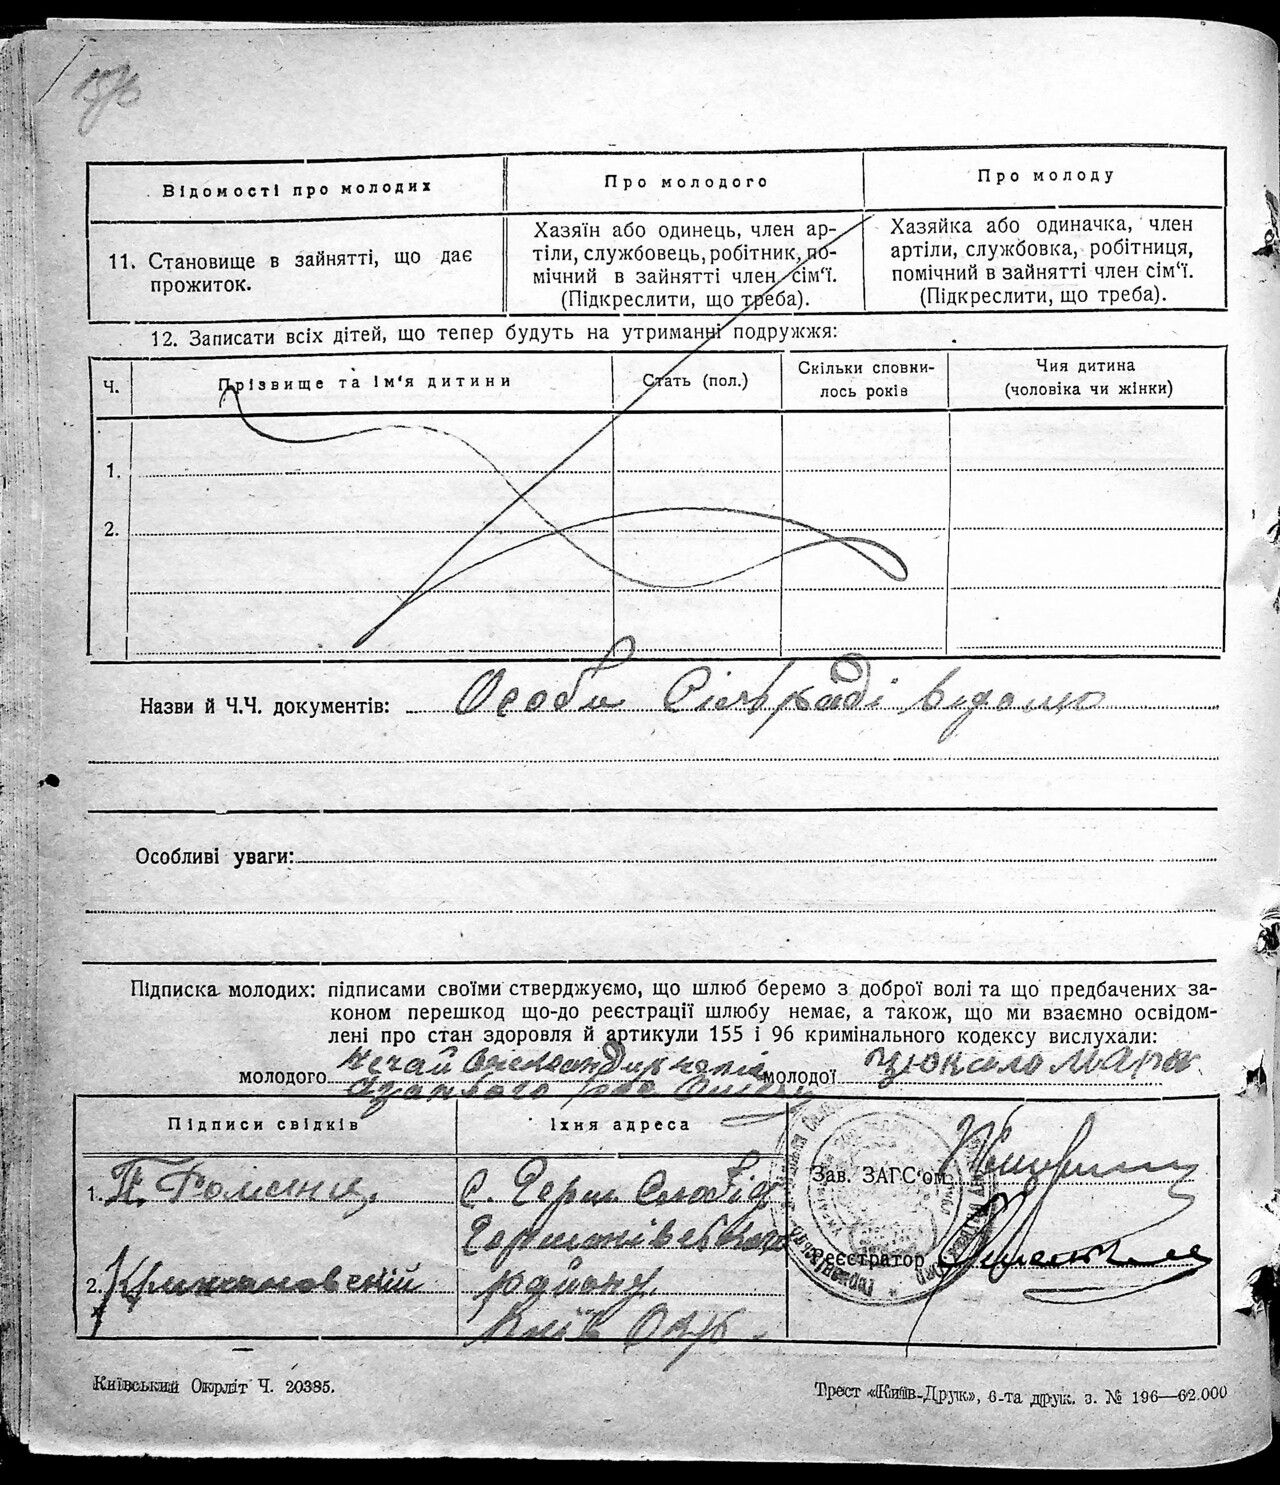 156
Відомості про молодих
Про молодого
Про молоду
11. Становище в зайнятті, що дає
прожиток.
Хазяїн або одинець, член ар-
тіли, службовець, робітник, по-
мічний в зайнятті член сім'ї.
(Підкреслити, що треба).
Хазяйка або одиначка, член
артіли, службовка, робітниця,
помічний в зайнятті член сім'ї.
(Підкреслити, що треба).
12. Записати всіх дітей, що тепер будуть на утриманні подружжя:
Ч.
Прізвище та ім'я дитини
Стать (пол.)
Скільки сповни-
лось років
Чия дитина
(чоловіка чи жінки)
1.
2.
Назви й Ч.Ч. документів: Особи Сільраді відомо
Особливі уваги:
Підписка молодих: підписами своїми стверджуємо, що шлюб беремо з доброї волі та що предбачених за-
коном перешкод що-до реєстрації шлюбу немає, а також, що ми взаємно освідом-
лені про стан здоровля й артикули 155 і 96 кримінального кодексу вислухали:
молодого Нечай
молодої
Підписи свідків
їхня адреса
1.
с. Герм. Слобід
Германівського
2.
району.
Київ Окр.
Зав. ЗАГС'ом
Реєстратор
Київський Окрліт Ч. 20385.
Трест «Київ-Друк», 6-та друк. з. № 196—62.000